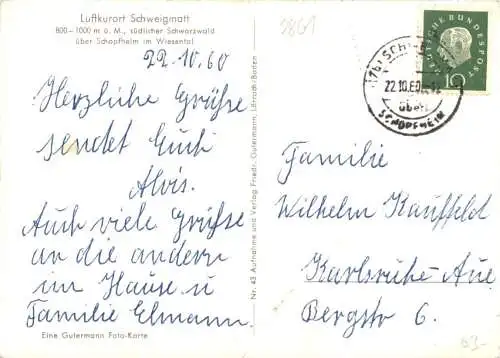 Luftkurort Schweigmatt
800–1000 m ü. M., südlicher Schwarzwald
über Schopfheim im Wiesental
22.10.60
Herzliche Grüße
sendet Euch
Alois.
Auch viele Grüße
an die andern
im Hause u
Familie Elmann.
Eine Gutermann Foto-Karte
Nr. 43 Aufnahme und Verlag Friedr. Gutermann, Lörrach-Baden
2861
(17b) SCHW
22.10.60
über
SCHOPFHEIM
DEUTSCHE BUNDESPOST
10
Familie
Wilhelm Kauffeld
Karlsruhe-Aue
Bergstr 6.